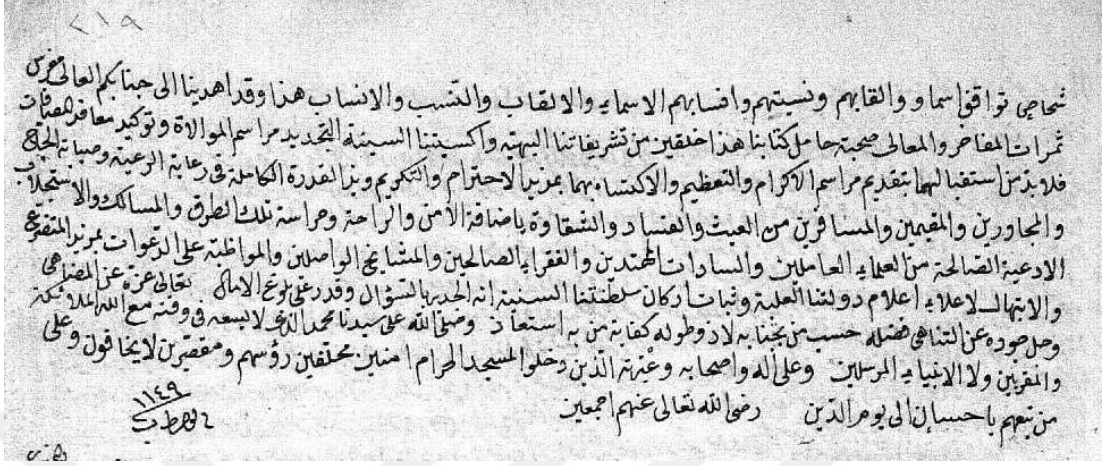 ٢١٩
شحاحي توافق اسماؤ والقابهم ونسبتهم وانسابهم الاسماء والالقاب والنسب والانساب هذا وقد اهدينا الى جنابكم العالى مغرس
ثمرات المفاخر والمعالى صحبة حامل كتابنا هذا خلقين من تشريفاتنا البهية واكسيتنا السنية التجديد مراسم الموالاة وتوكيد معاقد المصافات
فلابد من استقبالهما بتقديم مراسم الاكرام والتعظيم والاكتساء بهما بمزيد الاحترام والتكريم وبذ القدرة الكاملة فى رعاية الرعية وصيانة الحجاج
والمجاورين والمقيمين والمسافرين من العيث والفساد والشقاوة باضافة الأمن والراحة وحراسة تلك الطرق والمسالك والاستجلاب
الادعية الصالحة من العلماء العاملين والسادات المهتدين والفقراء الصالحين والمشايخ الواصلين والمواظبة على الدعوات بمزيد التضرع
والابتهال لاعلاء اعلام دولتنا العلية وثبات اركان سلطنتنا السنية انه الجدير بالسؤال وقدر على بلوغ الامال تعالى عزه عن المضاهى
وجل جوده عن التناهى فضله حسب من بجنابه لاذ وطوله كفاية من به استعاذ وصلى الله على سيدنا محمد الذى لا يسعه فى وقته مع الله الملائكة
والمقربين ولا الانبياء المرسلين وعلى آله واصحابه وعترته الذين دخلوا المسجد الحرام امنين محلقين رؤسهم ومقصرين لا يخافون وعلى
من تبعهم باحسان الى يوم الدين رضى الله تعالى عنهم اجمعين
١١٤٩